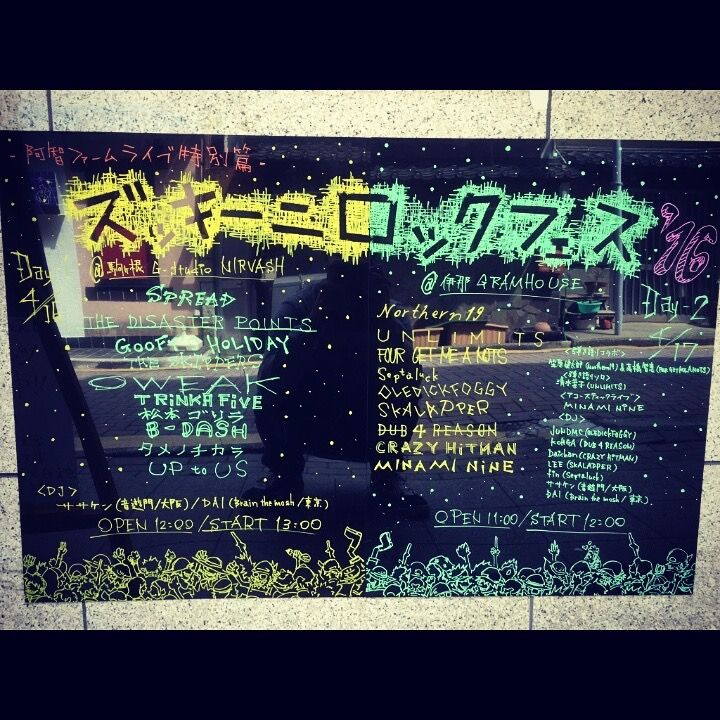 - 阿智ファームライブ特別篇 -
ズッキーニロックフェス '16
Day 1
4/16
@駒ヶ根 G-studio NIRVASH
SPREAD
THE DISASTER POINTS
GOOFY HOLIDAY
THE SKIPPERS
OWEAK
TRiNKA FiVE
松本ゴリラ
B-DASH
タメノチカラ
UP to US
<DJ>
ササケン(音遊門/大阪)/DAI(Brain the mosh/東京)
OPEN 12:00/START 13:00
Day-2
4/17
@伊那 GRAMHOUSE
Northern19
UNLIMITS
FOUR GET ME A NOTS
Septaluck
OLEDICKFOGGY
SKALAPPER
DUB 4 REASON
CRAZY HiTMAN
MINAMi NiNE
<弾き語りコラボ>
笠原健太郎(Northern19)&高橋智恵(FOUR GET ME A NOTS)
<弾き語りソロ>
清水葉子(UNLIMITS)
<アコースティックライブ>
MINAMI NiNE
<DJ>
JUNDMS(OLEDICKFOGGY)
KOAGA(DUB 4 REASON)
Daichan(CRAZY HITMAN)
LEE(SKALAPPER)
fin(Septaluck)
ササケン(音遊門/大阪)
DAI(Brain the mosh/東京)
OPEN 11:00/START 12:00